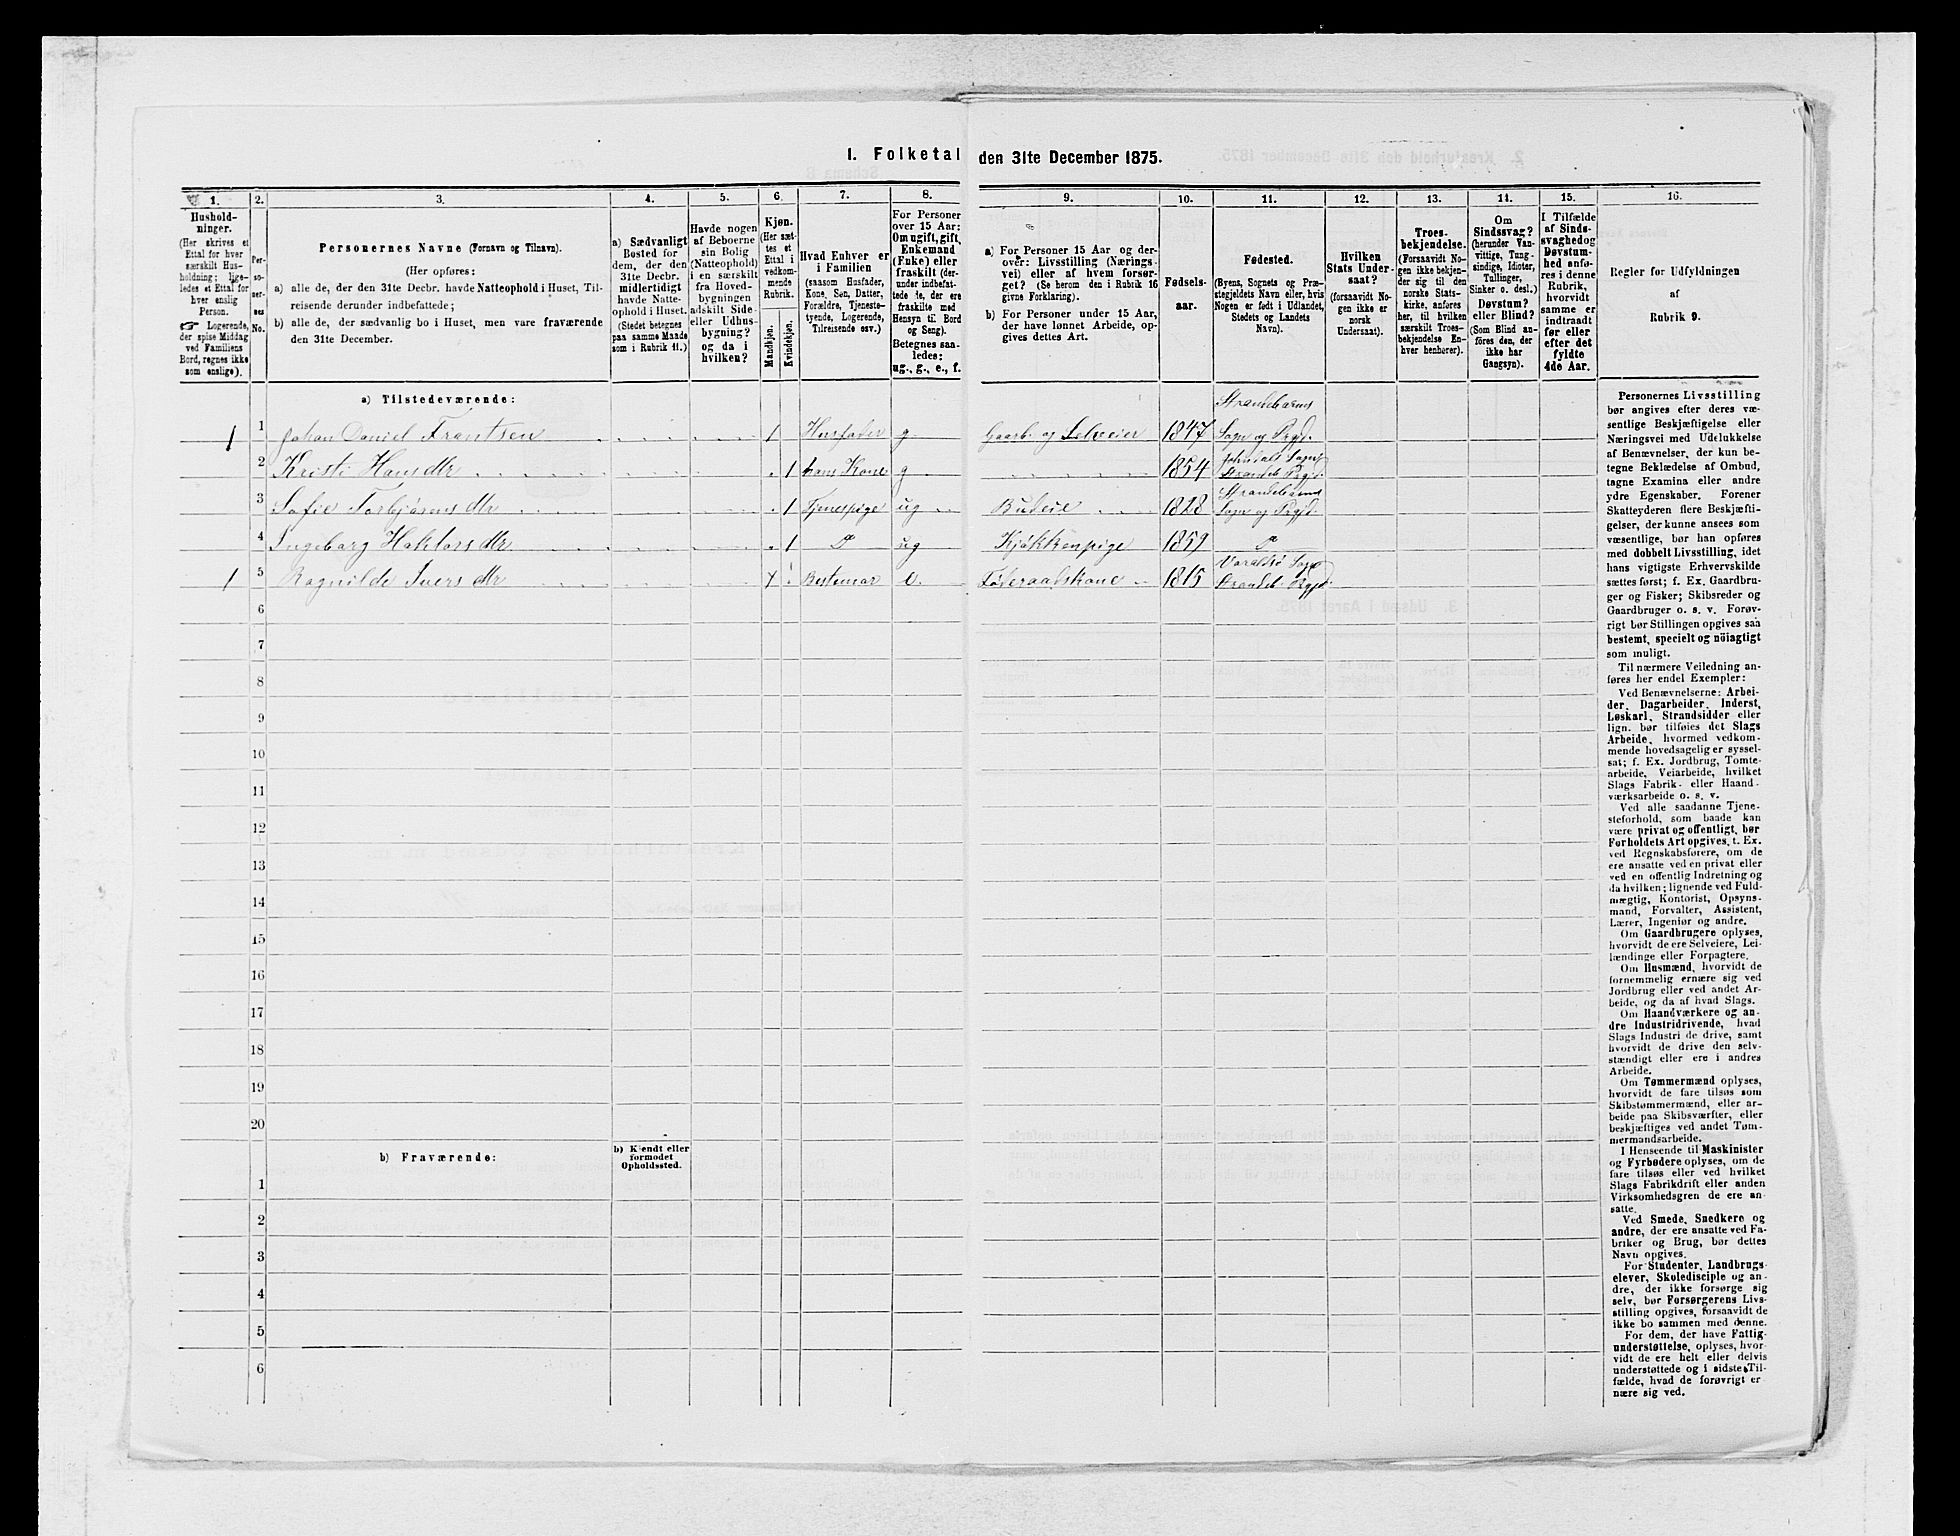 1. Folketal den 31te December 1875.
1.
Hushold-
ninger.
(Her skrives et
Ettal for hver
særskilt Hus-
holdning; lige-
ledes et Ettal for
hver enslig
Person.
☞ Logerende,
der spise Middag
ved Familiens
Bord, regnes ikke
som enslige).
2.
Per-
so-
ner-
nes
No.
3.
Personernes Navne (Fornavn og Tilnavn).
(Her opføres:
a) alle de, der den 31te Decbr. havde Natteophold i Huset, Til-
reisende derunder indbefattede;
b) alle de, der sædvanlig bo i Huset, men vare fraværende
den 31te December.
4.
a) Sædvanligt
Bosted for
dem, der den
31te Decbr.
midlertidigt
havde Natte-
ophold i Huset.
(Stedet betegnes
paa samme Maade
som i Rubrik 11.)
5.
Havde nogen
af Beboerne
sin Bolig
(Natteophold)
i en særskilt
fra Hoved-
bygningen
adskilt Side-
eller Udhus-
bygning?
og da i
hvilken?
6.
Kjøn.
(Her sæt-
tes et
Ettal i
vedkom-
mende
Rubrik.
Mandkjøn.
Kvindekjøn.
7.
Hvad Enhver er
i Familien
(saasom Husfader,
Kone, Søn, Datter,
Forældre, Tjeneste-
tyende, Logerende,
Tilreisende osv.)
8.
For Personer
over 15 Aar:
Om ugift, gift,
Enkemand
(Enke) eller
fraskilt (der-
under indbefat-
tede de, der ere
fraskilte med
Hensyn til Bord
og Seng).
Betegnes saa-
ledes:
ug., g., e., f.
9.
a) For Personer 15 Aar og der-
over: Livsstilling (Nærings-
vei) eller af hvem forsør-
get? (Se herom den i Rubrik 16
givne Forklaring).
b) For Personer under 15 Aar,
der have lønnet Arbeide, op-
gives dettes Art.
10.
Fødsels-
aar.
11.
Fødested.
(Byens, Sognets og Præ-
stegjeldets Navn eller, hvis
Nogen er født i Udlandet,
Stedets og Landets
Navn).
12.
Hvilken
Stats Under-
saat?
(forsaavidt No-
gen ikke er
norsk
Undersaat).
13.
Troes-
bekjendelse.
(Forsaavidt No-
gen ikke bekjen-
der sig til den
norske Stats-
kirke, anføres
her, til hvilken
særskilt Troes-
bekjendelse En-
hver henhører).
14.
Om
Sindssvag?
(herunder Van-
vittige, Tung-
sindige, Idioter,
Tullinger,
Sinker o. desl.)
Døvstum?
eller Blind?
(Som Blind an-
føres den, der
ikke har
Gangsyn).
15.
I Tilfælde
af Sinds-
svaghed og
Døvstum-
hed anfø-
res i denne
Rubrik,
hvorvidt
samme er
indtraadt
før eller
efter det
fyldte
4de Aar.
16.
Regler for Udfyldningen
af
Rubrik 9.
a) Tilstedeværende:
1 1 Johan Daniel Frantsen 1 Husfader g Gaarb. og Selveier 1847 Strandebarms Sogn og Prgjd.
2 Kristi Hans dtr 1 hans Kone g 1854 Johndals Sogn Strandeb Prgjd.
3 Sofie Torbjörens dtr 1 Tjenespige ug Budeie 1828 Strandebarms Sogn og Prgjd
4 Ingeborg Haktors dtr 1 D ug Kjøkkenpige 1859 D
1 5 Ragnilde Ivers dtr 1 Bestemor e. Föderaadskone 1815 Varaldsö Sogn Strandeb Prgjd.
6
7
8
9
10
11
12
13
14
15
16
17
18
19
20
b) Fraværende:
b) Kjendt eller
formodet
Opholdssted.
1
2
3
4
5
6
Personernes Livsstilling
bør angives efter deres væ-
sentlige Beskjæftigelse eller
Næringsvei med Udelukkelse
af Benævnelser, der kun be-
tegne Beklædelse af Ombud,
tagne Examina eller andre
ydre Egenskaber. Forener
Skatteyderen flere Beskjæfti-
gelser, der kunne ansees som
væsentlige, bør han opføres
med dobbelt Livsstilling, idet
hans vigtigste Erhvervskilde
sættes først; f. Ex. Gaardbru-
ger og Fisker; Skibsreder og
Gaardbruger o. s. v. Forøv-
rigt bør Stillingen opgives saa
bestemt, specielt og nöiagtigt
som muligt.
Til nærmere Veiledning an-
føres her endel Exempler:
Ved Benævnelserne: Arbei-
der, Dagarbeider, Inderst,
Løskarl, Strandsidder eller
lign. bør tilføies det Slags
Arbeide, hvormed vedkom-
mende hovedsagelig er syssel-
sat; f. Ex. Jordbrug, Tomte-
arbeide, Veiarbeide, hvilket
Slags Fabrik- eller Haand-
værksarbeide o. s. v.
Ved alle saadanne Tjene-
steforhold, som baade kan
være privat og offentligt, bør
Forholdets Art opgives, t. Ex.
ved Regnskabsførere, om de
ere ansatte ved en privat eller
ved en offentlig Indretning og
da hvilken; lignende ved Fuld-
mægtig, Kontorist, Opsyns-
mand, Forvalter, Assistent,
Lærer, Ingeniør og andre.
Om Gaardbrugere oplyses,
hvorvidt de ere Selveiere, Lei-
lændinge eller Forpagtere.
Om Husmænd, hvorvidt de
fornemmelig ernære sig ved
Jordbrug eller ved andet Ar-
beide, og da af hvad Slags.
Om Haandværkere og an-
dre Industridrivende, hvad
Slags Industri de drive, samt
hvorvidt de drive den selv-
stændigt eller ere i andres
Arbeide.
Om Tømmermænd oplyses,
hvorvidt de fare tilsøs som
Skibstømmermænd, eller ar-
beide paa Skibsværfter, eller
beskjæftiges ved andet Tøm-
mermandsarbeide.
I Henseende til Maskinister
og Fyrbødere oplyses, om de
fare tilsøs eller ved hvilket
Slags Fabrikdrift eller anden
Virksomhedsgren de ere an-
satte.
Ved Smede, Snedkere og
andre, der ere ansatte ved Fa-
briker og Brug, bør dettes
Navn opgives.
For Studenter, Landbrugs-
elever, Skoledisciple og an-
dre, der ikke forsørge sig
selv, bør Forsørgerens Livs-
stilling opgives, forsaavidt de
ikke bo sammen med denne.
For dem, der have Fattig-
understøttelse, oplyses, hvor-
vidt de ere helt eller delvis
understøttede og i sidste Til-
fælde, hvad de forøvrigt er
nære sig ved.